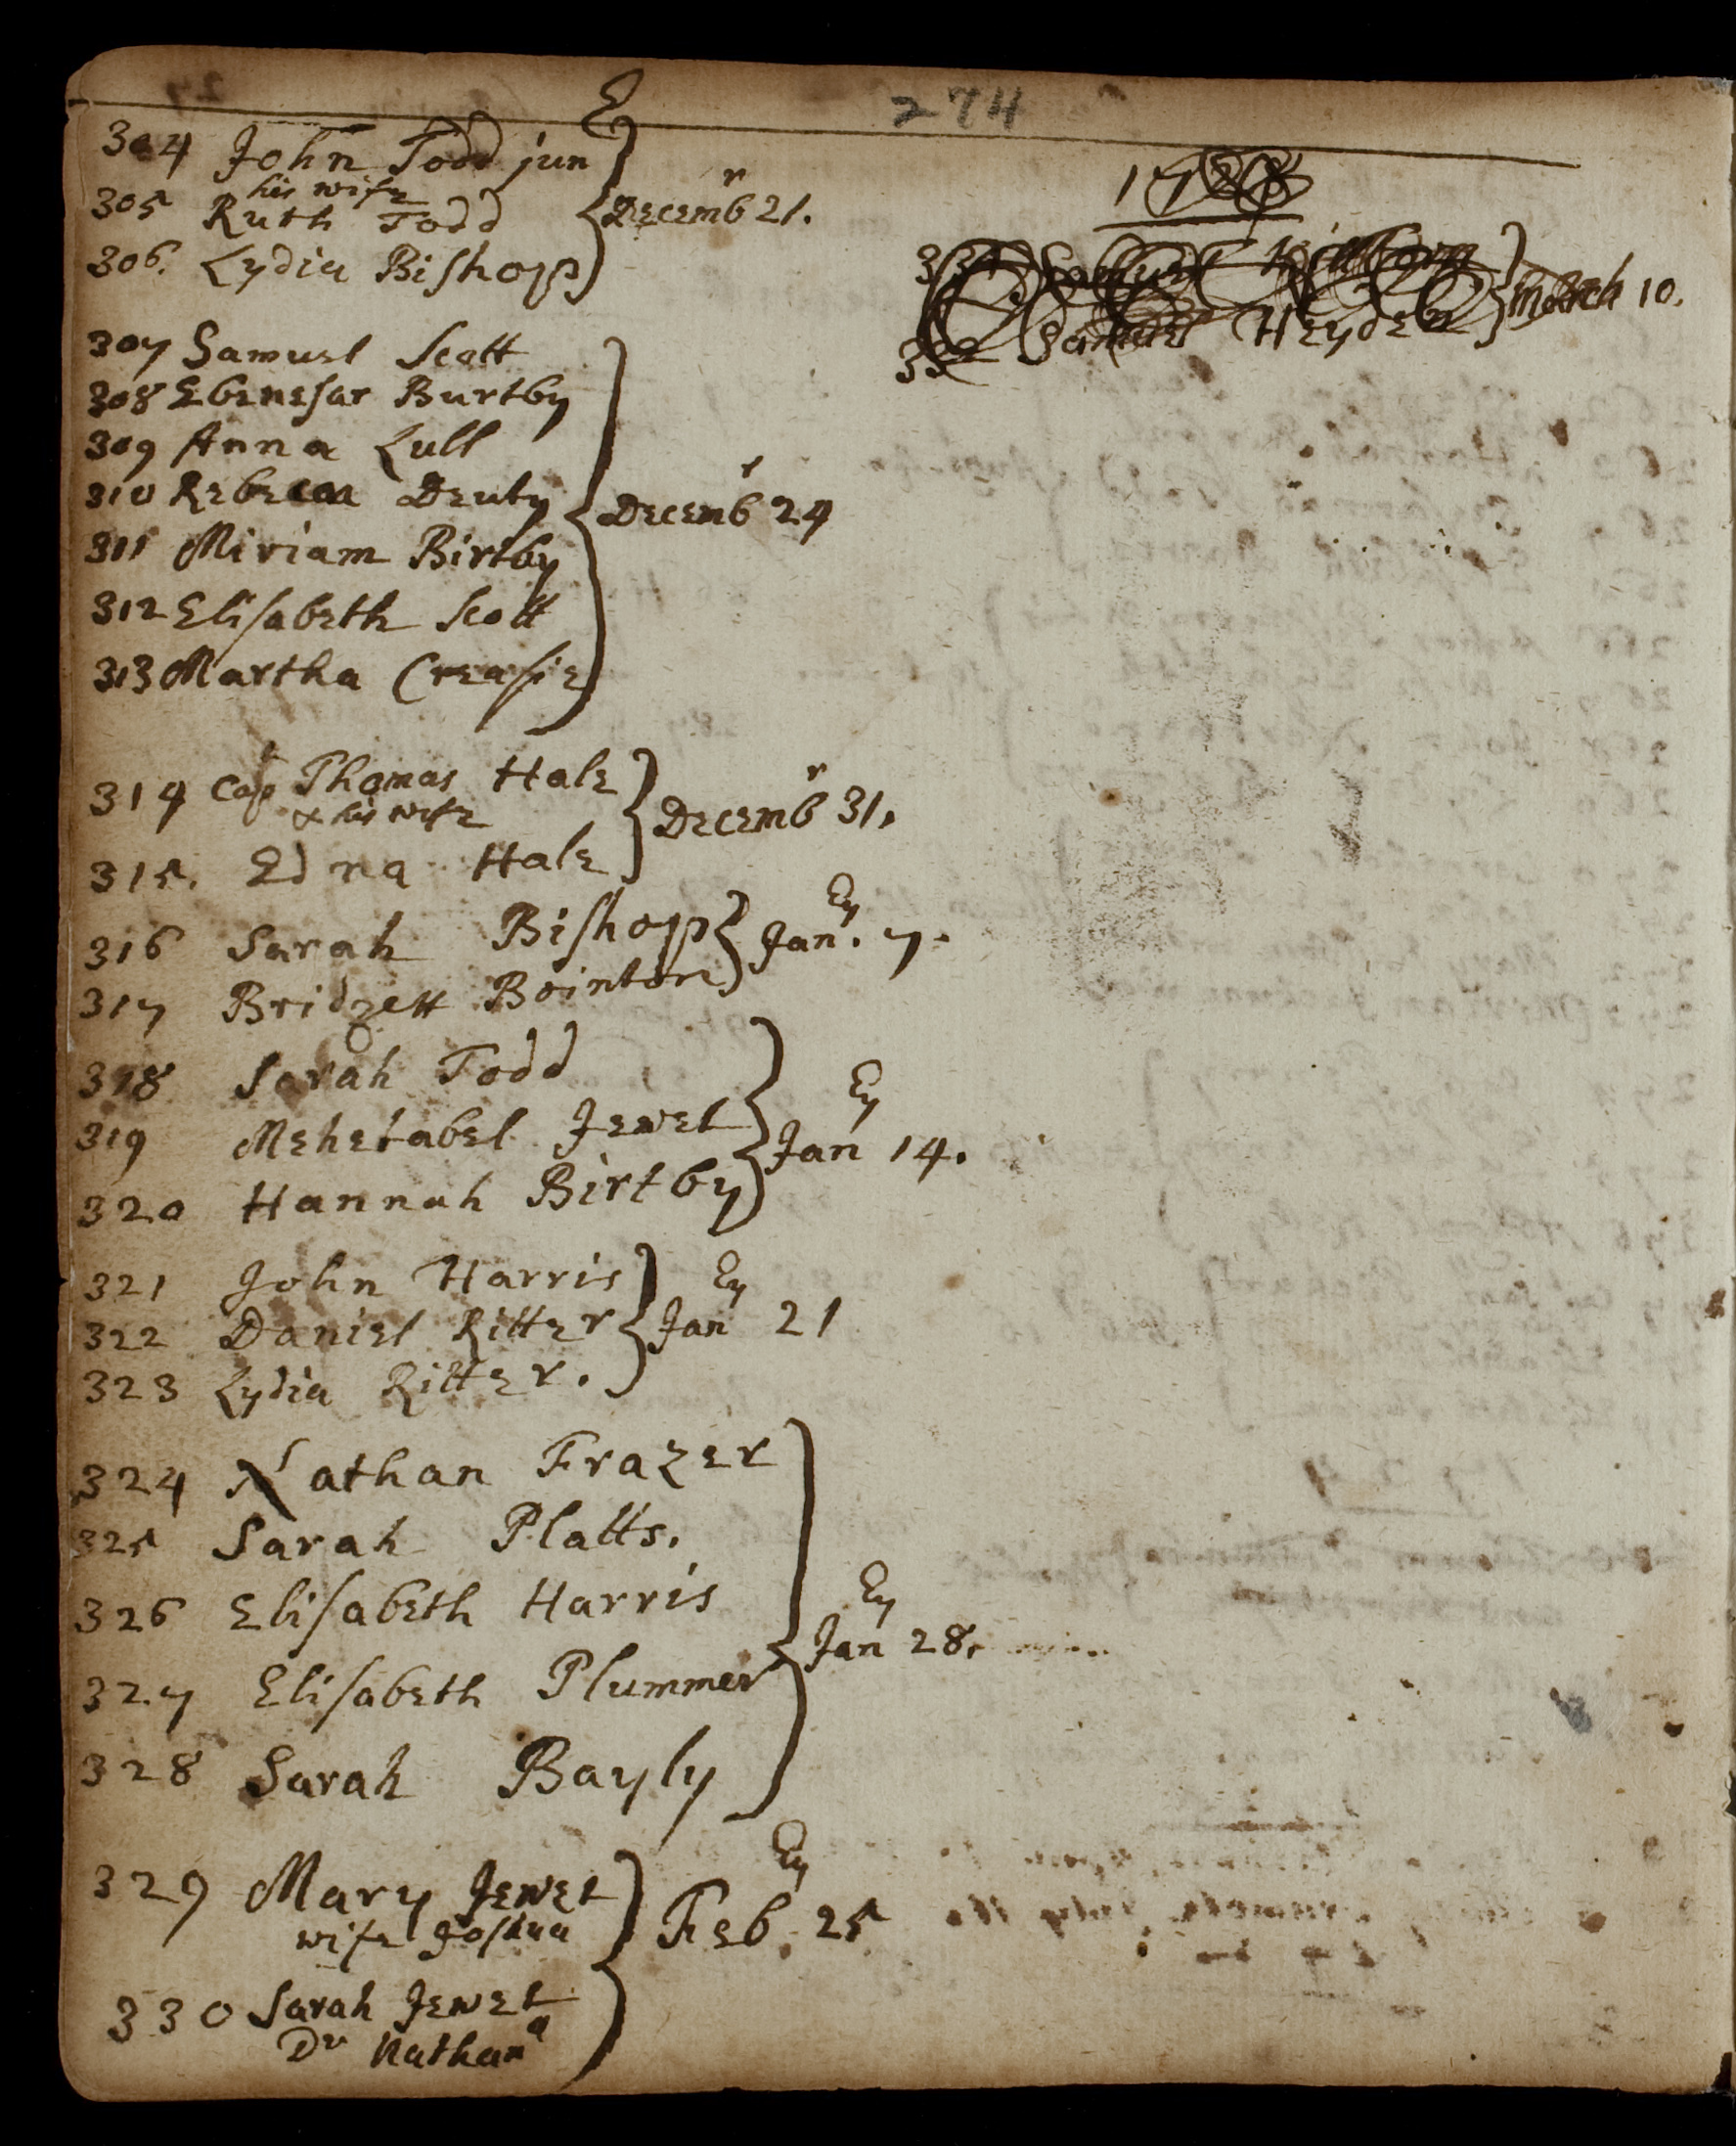 274
304 John Todd jun
his wife
305 Ruth Todd
Decembr 21.
306. Lydia Bishop
307 Samuel Scott
308 Ebenesar Burtby
309 Anna Lull
310 Rebecca Deuty
Decembr 24
311 Miriam Birtby
312 Elisabeth Scott
313 Martha Creasie
314 Capt Thomas Hale
& his wife
Decembr 31.
315. Edna Hale
316 Sarah Bishop
JanEy. 7.
317 Bridgett Bointon
318 Sarah Todd
319 Mehetabel Jewet
JanEy 14.
320 Hannah Birtby
321 John Harris
322 Daniel Ritter
JanEy 21
323 Lydia Ritter.
324 Nathan Frazer
325 Sarah Platts.
326 Elisabeth Harris
JanEy 28.
327 Elisabeth Plummer
328 Sarah Bayly
329 Mary Jewet
wife Joshua
FebEy. 25
330 Sarah Jewet
Dr Nathana
1728
331 Samuel Kilborn
March 10.
332 Samuel Heyden